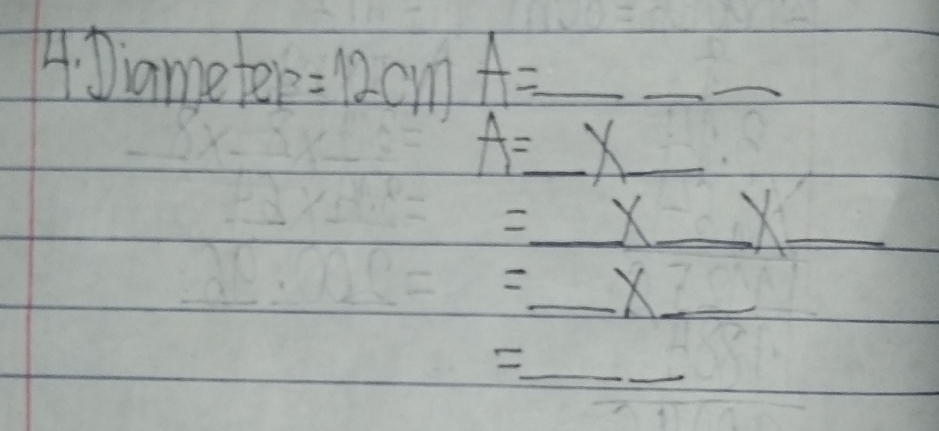 4. Diameter = 12 cm A = __ __ __
A = __ X __.
= __ X __ X __
= __ X __
= __ __